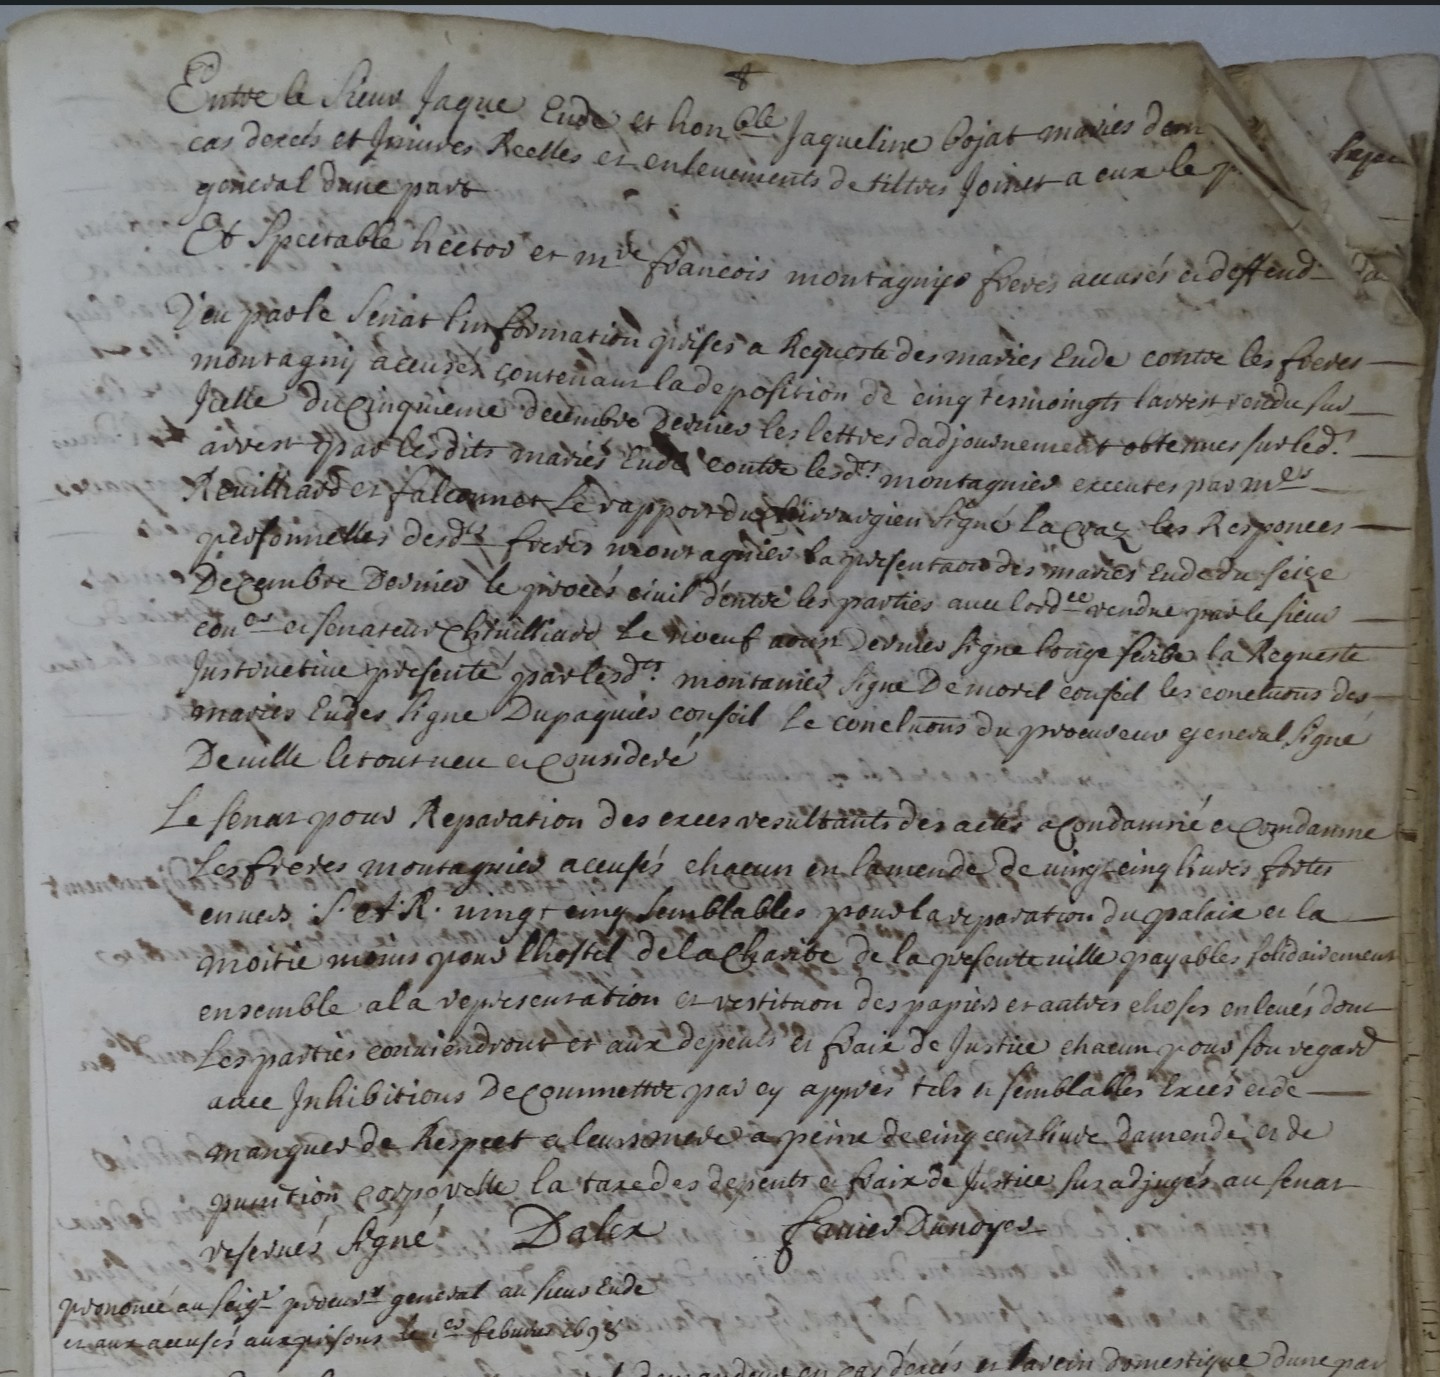 Entre le Sieur Jaque Eude et honble Jaqueline bojat mariés dem
cas dexcés et Injures Reelles et enlevements de tiltres Joinct a eux le p
general dune part
Et Spectable hector et mre francois montagnier freres accusés et deffend.rs da
Veu par le Senat linformation prises a Requeste des mariés Eude contre les freres
montagny accusés contenant la deposition de cinq tesmoingts larrest rendu sur
Jcelle du cinquieme decembre Dernier les lettres dadjournement obtenues sur led.t
arrest par lesdits mariés Eude contre lesd.ts montagnier executes par mes
Reuilliard et falconnet Le rapport du chirurgien signé Lacraz les Responces
personnelles desd.ts freres montagnier la presentaon des mariés Eude du seize
Decembre Dernier le procés civil dentre les parties avec lordce rendue par le sieur
coner et senateur Chuilliard le noeuf aoust Dernier signe la Requeste
Instructive presenté par lesd.ts montanier signe Demorel conseil les concluons des
mariés Eudes signe Dupaquier conseil Le concluons du procureur general signé
Deville le tout veu et consideré
Le senat pour Reparation des exces resultants des actes a condamné et condamne
Les freres montagnier accusés chacun en lamende de vingt cinq livres fortes
envers S. A. R. vingt cinq semblables pour la reparation du palaix et la
moitié moins pour lhostel de la Charité de la presente ville payables solidairement
ensemble a la representation et restituon des papiers et autres choses enlevés dont
Les parties conviendront et aux depents et fraix de Justice chacun pour son regard
avec Inhibitions De commettre par cy appres tels et semblables Excés et de
manquer de Respect a leur mere a peine de cinq cent livre damende et de
punition corporelle la taxe des depents et fraix de Justice sus adjugés au senat
reservés signé Dalex favier Dunoyer
prononcé au seigr procurr general au sieur Eude
et aux accusés aux prisons le 1er febvrier 1698
demandeur en cas dexcés et larcin domestique dune par